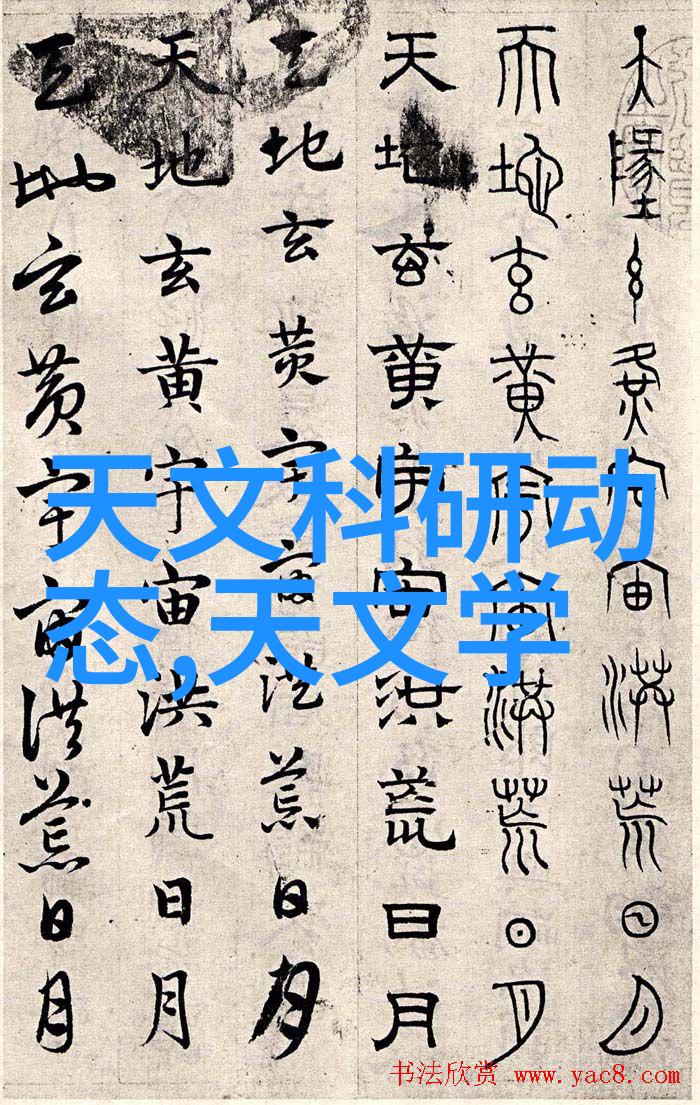 天文科研动
态,天文学
天墬玄黄宇宙洪荒日月
天地玄黄宇宙洪荒日月
天地玄黄宇宙洪荒日月
天地玄黄宇宙洪荒日月
天地玄黄宇宙洪荒日月
天地玄黄宇宙洪荒日月
书法欣赏 www.yac8.com